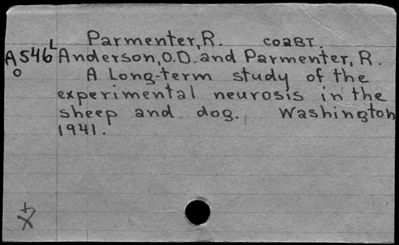 Parmenter, R. coaBT.
A546 L Anderson, O.D. and Parmenter, R.
o A Long-term study of the
experimental neurosis in the
sheep and dog. Washington
1941.